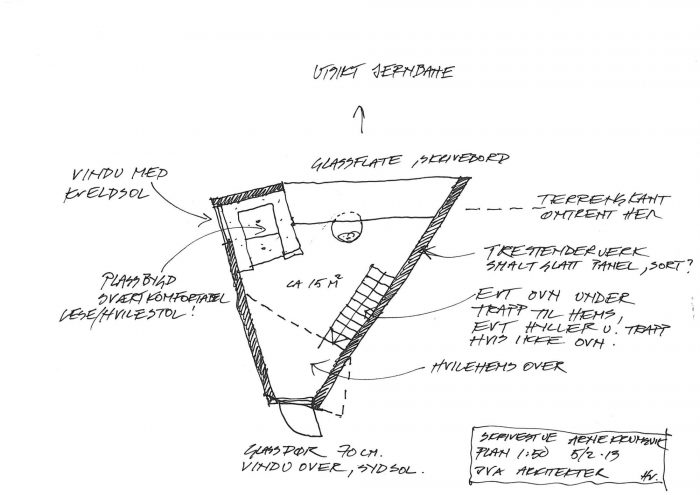 UTSIKT JERNBANE
GLASSFLATE, SKRIVEBORD
VINDU MED
KVELDSOL
TERRENGKANT
OMTRENT HER
TRESTENDERVERK
SMALT GLATT PANEL, SORT?
PLASSBYGD
SVÆRT KOMFORTABEL
LESE/HVILESTOL!
CA 15 M²
EVT OVN UNDER
TRAPP TIL HEMS,
EVT HYLLER U. TRAPP
HVIS IKKE OVN.
HVILEHEMS OVER
GLASSDØR 70 CM.
VINDU OVER, SYDSOL.
SKRIVESTUE ARNE KRUMSVIK
PLAN 1:50 5/2-13
DVA ARKITEKTER